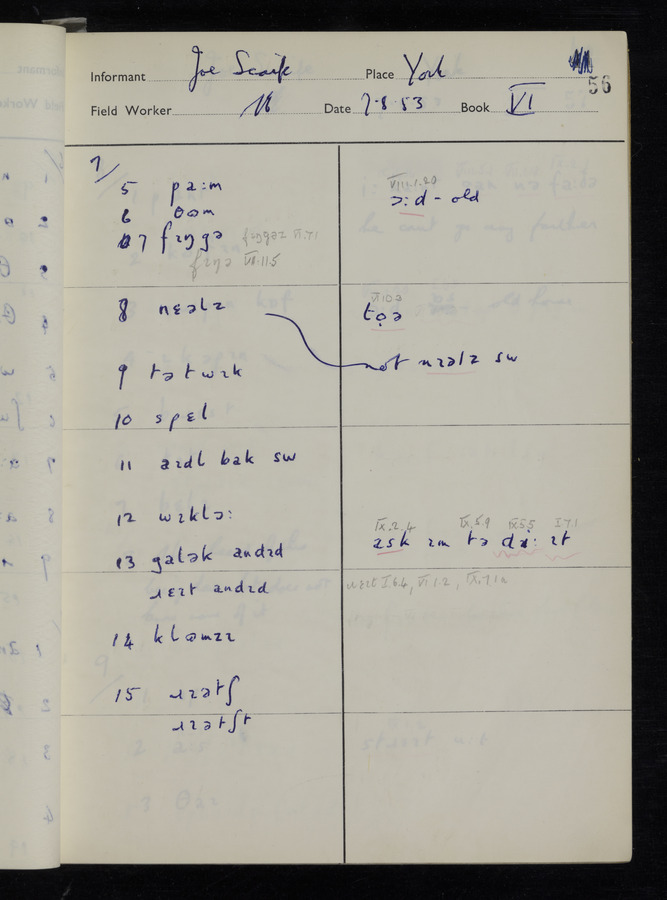 Informant Joe Scaife Place York 56
Field Worker Date 7.8.53 Book VI
7/
5 pa:m
ɔ:d - old
6 θəm
7 fɪŋgə
fɪŋgəz VI.7.1
fɪŋə VII.11.5
VIII.1.20
8 nɛəlz
VI 10 2
tọə
not nɪəlz sw
9 tə twɪk
10 spɛl
11 aɪdl bak sw
12 wɪklɔ:
13 galək andɪd
IX.2.4 IX.5.9 IX 5 5 I 7 1
ask ɪm tə dɪ: ɪt
ɹɛɪt andɪd
ɹɛɪt I.6.4, VI.1.2, IX.7.1a
14 kləmzɪ
15 ɹɪətʃ
ɹɪətʃt